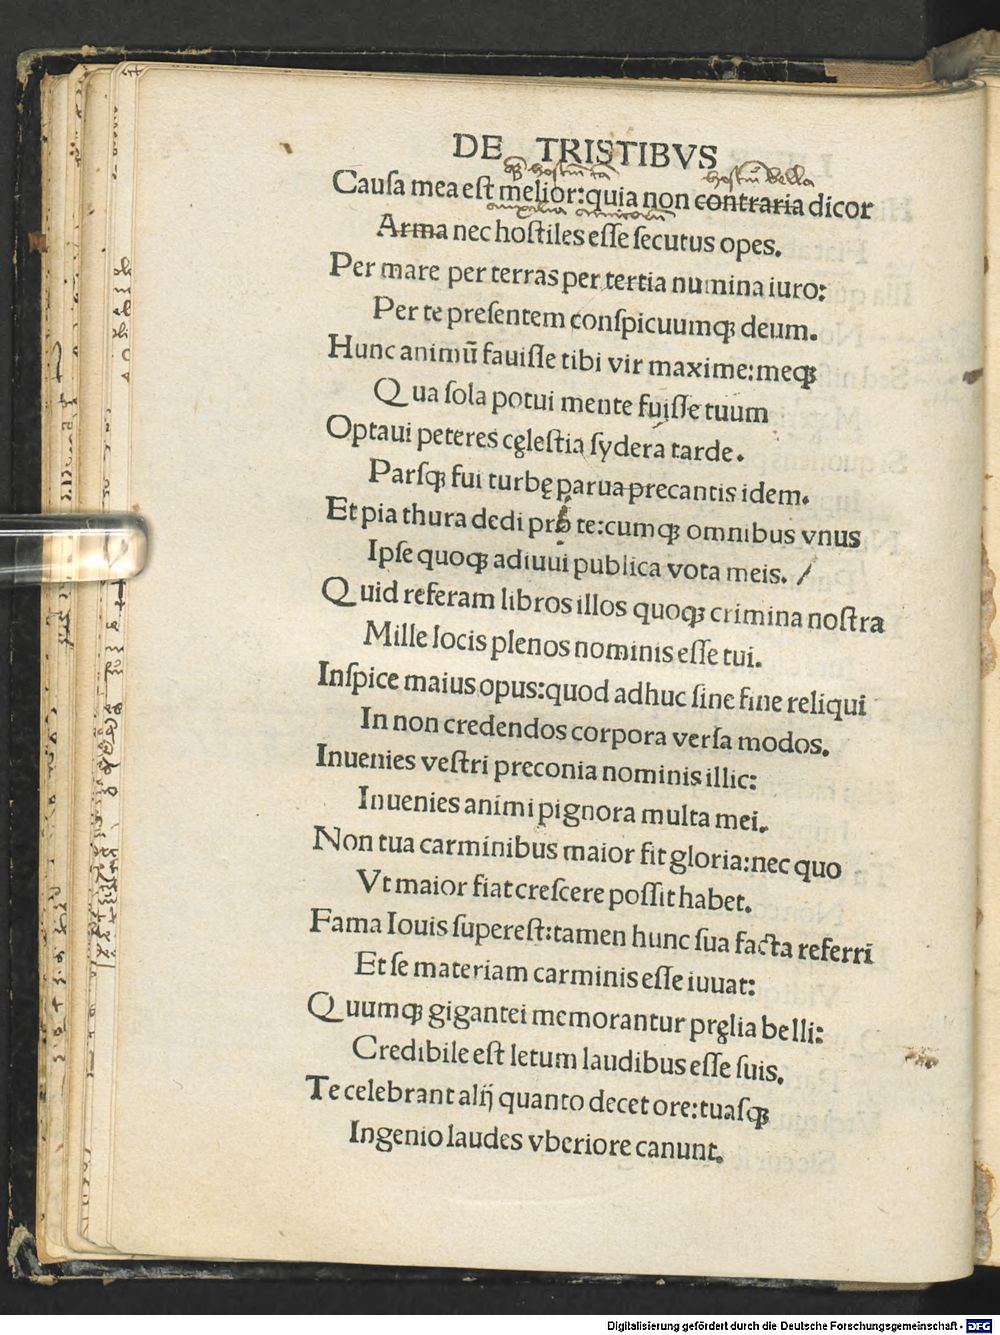 DE TRISTIBVS
hostiū bella
Cauſa mea eſt melior:quia non contraria dicor
Arma nec hoſtiles eſſe ſecutus opes.
Per mare per terras per tertia numina iuro:
Per te preſentem conſpicuumqꝫ deum.
Hunc animū fauiſſe tibi vir maxime:meqꝫ
Qua ſola potui mente fuiſſe tuum
Optaui peteres cęleſtia ſydera tarde.
Parſqꝫ fui turbę parua precantis idem.
Et pia thura dedi pro te:cumqꝫ omnibus vnus
Ipſe quoqꝫ adiuui publica vota meis. /
Quid referam libros illos quoqꝫ crimina noſtra
Mille locis plenos nominis eſſe tui.
Inſpice maius opus:quod adhuc ſine fine reliqui
In non credendos corpora verſa modos.
Inuenies veſtri preconia nominis illic:
Inuenies animi pignora multa mei.
Non tua carminibus maior fit gloria:nec quo
Vt maior fiat creſcere poſſit habet.
Fama Iouis ſupereſt:tamen hunc ſua facta referri
Et ſe materiam carminis eſſe iuuat:
Quumqꝫ gigantei memorantur pręlia belli:
Credibile eſt letum laudibus eſſe ſuis.
Te celebrant alij quanto decet ore:tuaſqꝫ
Ingenio laudes vberiore canunt.
Digitalisierung gefördert durch die Deutsche Forschungsgemeinschaft - DFG